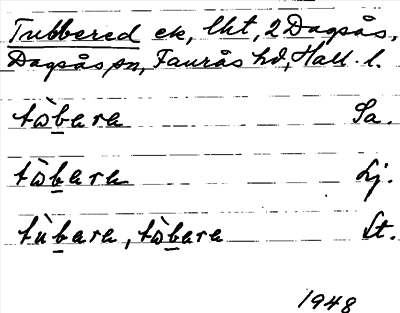 Tubbered ek, lht, 2 Dagsås,
Dagsås sn, Faurås hd, Hall. l.
tò̀bara Sa.
tò̀bara Lj.
tùbara, tò̀bara St.
1948